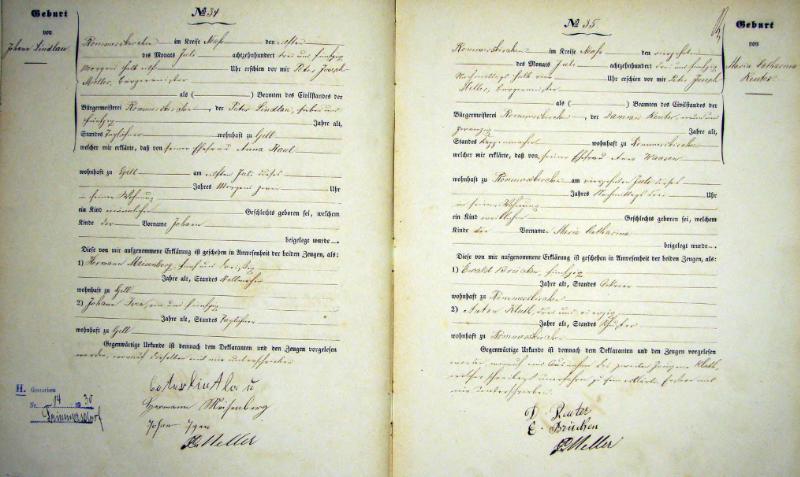 Geburt
von
Johann Lindlau
№ 34
Rommerskirchen im Kreise Neuß den elften
des Monats Juli achtzehnhundert drei und fünfzig
Morgens halb Uhr erschien vor mir Peter Joseph
Meller, Bürgermeister
als ( ) Beamten des Civilstandes der
Bürgermeisterei Rommerskirchen, der Peter Lindlau, sieben und
Jahre alt,
Standes Taglöhner wohnhaft zu Gill
welcher mir erklärte, daß von seiner Ehefrau Anna
wohnhaft zu Gill am elften Juli dieses
Jahres Morgens zwei Uhr
in seiner Wohnung
ein Kind männlichen Geschlechts geboren sei, welchem
Kinde der Vorname Johann
beigelegt wurde.
Diese von mir aufgenommene Erklärung ist geschehen in Anwesenheit der beiden Zeugen, als:
1) Hermann Meisenberg, fünf und dreißig
Jahre alt, Standes
wohnhaft zu Gill
2) Johann und fünfzig
Jahre alt, Standes Taglöhner
wohnhaft zu Gill
Gegenwärtige Urkunde ist demnach dem Deklaranten und den Zeugen vorgelesen
worden, worauf dieselben mit mir unterschrieben
Hermann Meisenberg
Johan
Meller
H.
Nr. 14
№ 35
Rommerskirchen im Kreise Neuß den vierzehnten
des Monats Juli achtzehnhundert drei und fünfzig
Nachmittags halb vier Uhr erschien vor mir Peter Joseph
Meller, Bürgermeister
als ( ) Beamten des Civilstandes der
Bürgermeisterei Rommerskirchen, der Reuter, neun und
zwanzig Jahre alt,
Standes wohnhaft zu Rommerskirchen
welcher mir erklärte, daß von seiner Ehefrau Anna
wohnhaft zu Rommerskirchen am vierzehnten Juli dieses
Jahres Nachmittags Uhr
in seiner Wohnung
ein Kind weiblichen Geschlechts geboren sei, welchem
Kinde die Vorname Maria Catharina
beigelegt wurde.
Diese von mir aufgenommene Erklärung ist geschehen in Anwesenheit der beiden Zeugen, als:
1) Ewald Brücken, fünfzig
Jahre alt, Standes Ackerer
wohnhaft zu Rommerskirchen
2) Anton und vierzig
Jahre alt, Standes
wohnhaft zu Rommerskirchen
Gegenwärtige Urkunde ist demnach dem Deklaranten und den Zeugen vorgelesen
worden worauf mit Ausnahme des zweiten Zeugen
unterschrieben.
Reuter
E. Brücken
Meller
Geburt
von
Maria Catharina
Reuter